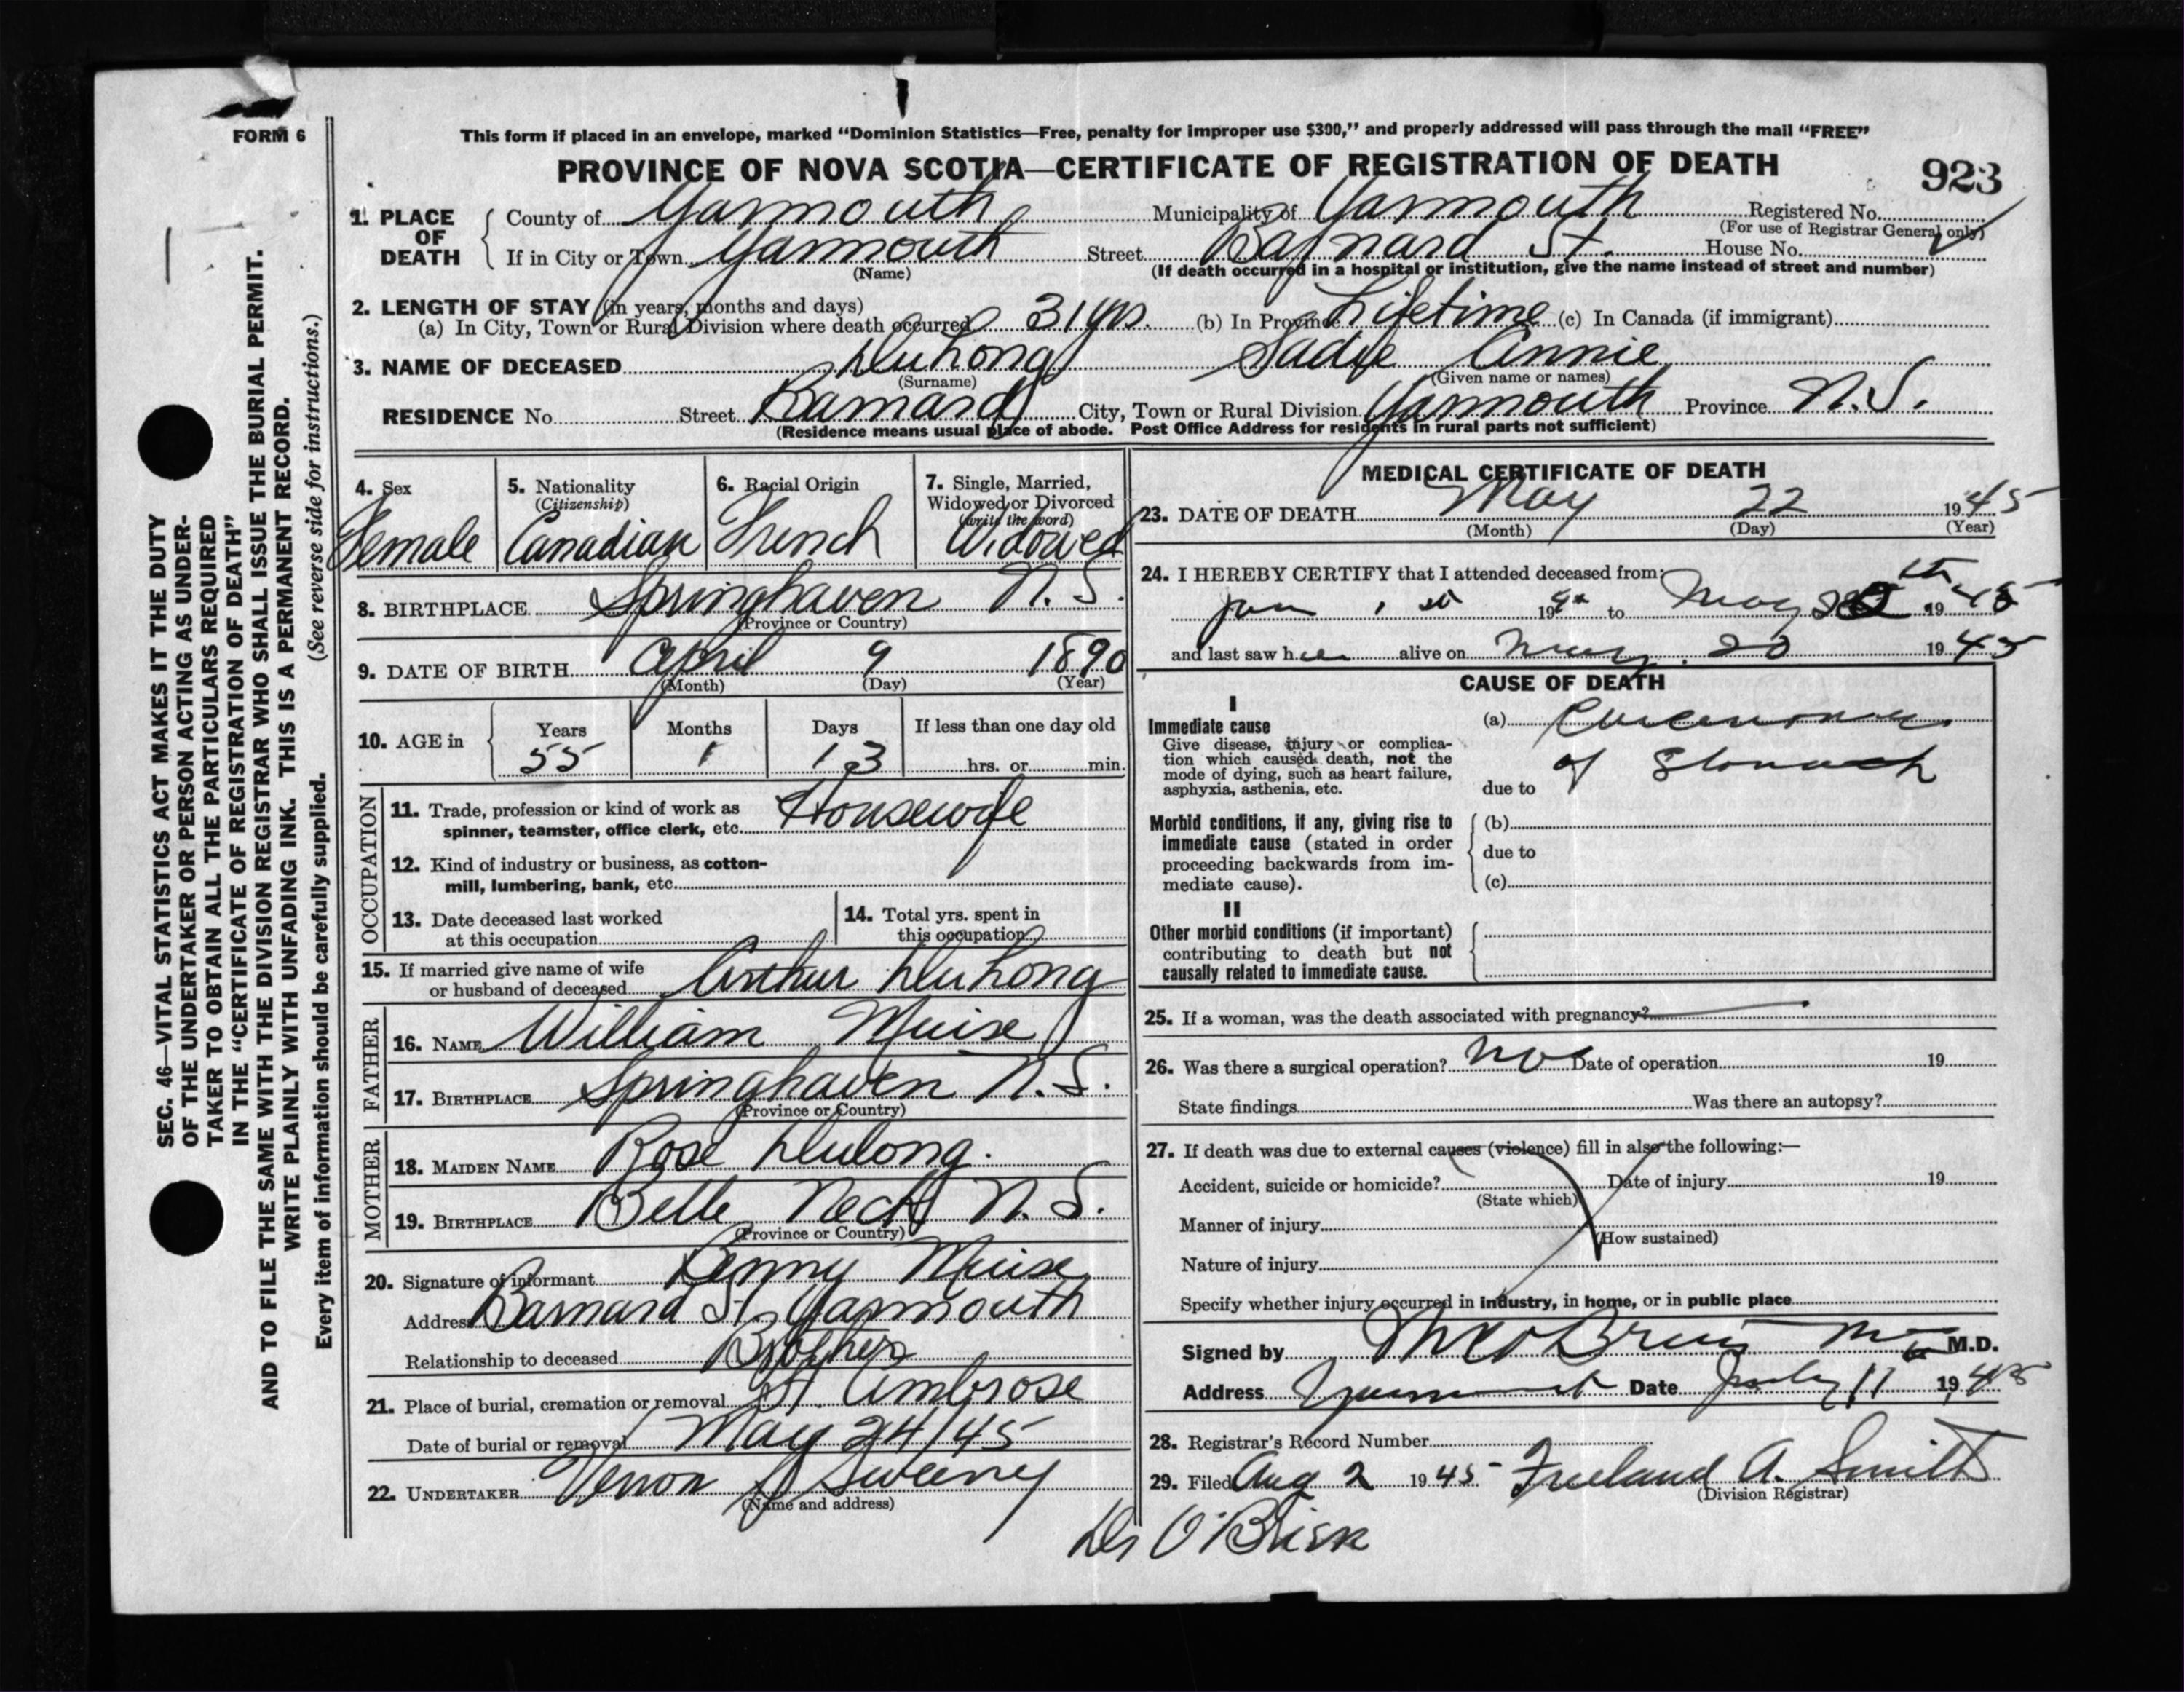 FORM 6
This form if placed in an envelope, marked “Dominion Statistics—Free, penalty for improper use $300,” and properly addressed will pass through the mail “FREE”
PROVINCE OF NOVA SCOTIA—CERTIFICATE OF REGISTRATION OF DEATH
923
1. PLACE OF DEATH
County of Yarmouth Municipality of Yarmouth Registered No.
(For use of Registrar General only)
If in City or Town Yarmouth Street Barnard St. House No.
(Name) (If death occurred in a hospital or institution, give the name instead of street and number)
2. LENGTH OF STAY (in years, months and days)
(a) In City, Town or Rural Division where death occurred 31 yrs. (b) In Province Lifetime (c) In Canada (if immigrant)
3. NAME OF DECEASED DuLong Sadie Annie
(Surname) (Given name or names)
RESIDENCE No. Street Barnard City, Town or Rural Division Yarmouth Province N.S.
(Residence means usual place of abode. Post Office Address for residents in rural parts not sufficient)
4. Sex
Female
5. Nationality
(Citizenship)
Canadian
6. Racial Origin
French
7. Single, Married,
Widowed or Divorced
(write the word)
Widowed
8. BIRTHPLACE Springhaven N.S.
(Province or Country)
9. DATE OF BIRTH April 9 1890
(Month) (Day) (Year)
10. AGE in
Years Months Days If less than one day old
55 1 13 hrs. or min.
OCCUPATION
11. Trade, profession or kind of work as
spinner, teamster, office clerk, etc. Housewife
12. Kind of industry or business, as cotton-
mill, lumbering, bank, etc.
13. Date deceased last worked
at this occupation
14. Total yrs. spent in
this occupation
15. If married give name of wife
or husband of deceased Arthur DuLong
FATHER
16. NAME William Muise
17. BIRTHPLACE Springhaven N.S.
(Province or Country)
MOTHER
18. MAIDEN NAME Rose Dulong.
19. BIRTHPLACE Belle Neck N.S.
(Province or Country)
20. Signature of informant Benny Muise
Address Barnard St. Yarmouth
Relationship to deceased Brother
21. Place of burial, cremation or removal St. Ambrose
Date of burial or removal May 24/45
22. UNDERTAKER Vernon Sweeny
(Name and address)
MEDICAL CERTIFICATE OF DEATH
23. DATE OF DEATH May 22 1945
(Month) (Day) (Year)
24. I HEREBY CERTIFY that I attended deceased from:
Jan 19 to May 19 45
and last saw her alive on May 20 1945
CAUSE OF DEATH
I
Immediate cause
Give disease, injury or complica-
tion which caused death, not the
mode of dying, such as heart failure,
asphyxia, asthenia, etc.
(a) Carcinoma
of Stomach
due to
Morbid conditions, if any, giving rise to
immediate cause (stated in order
proceeding backwards from im-
mediate cause).
(b)
due to
(c)
II
Other morbid conditions (if important)
contributing to death but not
causally related to immediate cause.
25. If a woman, was the death associated with pregnancy?
26. Was there a surgical operation? No Date of operation 19
State findings Was there an autopsy?
27. If death was due to external causes (violence) fill in also the following:—
Accident, suicide or homicide? Date of injury 19
(State which)
Manner of injury
(How sustained)
Nature of injury
Specify whether injury occurred in industry, in home, or in public place
Signed by O'Brien M.D.
Address Yarmouth Date July 11 1945
28. Registrar's Record Number
29. Filed Aug 2 1945 Freeland A. Smith
(Division Registrar)
Dr O'Brien
SEC. 46—VITAL STATISTICS ACT MAKES IT THE DUTY
OF THE UNDERTAKER OR PERSON ACTING AS UNDER-
TAKER TO OBTAIN ALL THE PARTICULARS REQUIRED
IN THE “CERTIFICATE OF REGISTRATION OF DEATH”
AND TO FILE THE SAME WITH THE DIVISION REGISTRAR WHO SHALL ISSUE THE BURIAL PERMIT.
WRITE PLAINLY WITH UNFADING INK. THIS IS A PERMANENT RECORD.
Every item of information should be carefully supplied. (See reverse side for instructions.)